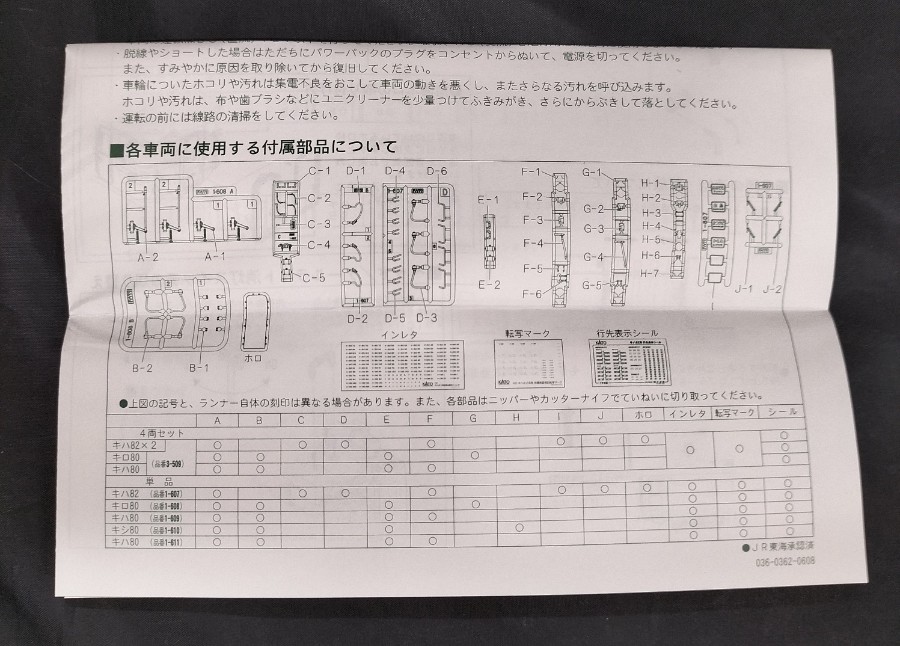 ・脱線やショートした場合はただちにパワーパックのプラグをコンセントからぬいて、電源を切ってください。
また、すみやかに原因を取り除いてから復旧してください。
・車輪についたホコリや汚れは集電不良をおこして車両の動きを悪くし、またさらなる汚れを呼び込みます。
ホコリや汚れは、布や歯ブラシなどにユニクリーナーを少量つけてふきみがき、さらにからぶきして落としてください。
・運転の前には線路の清掃をしてください。
■各車両に使用する付属部品について
1-608 A
A-2 A-1
C-1
C-2
C-3
C-4
C-5
D-1 D-4 D-6
D-2 D-5 D-3
E-1
E-2
F-1
F-2
F-3
F-4
F-5
F-6
G-1
G-2
G-3
G-4
G-5
H-1
H-2
H-3
H-4
H-5
H-6
H-7
J-1 J-2
1-608 B
B-2 B-1
ホロ
インレタ
転写マーク
行先表示シール
KATO
●上図の記号と、ランナー自体の刻印は異なる場合があります。また、各部品はニッパーやカッターナイフでていねいに切り取ってください。
A B C D E F G H I J ホロ インレタ 転写マーク シール
4両セット
キハ82×2 ○ ○ ○ ○ ○ ○ ○ ○
キロ80 (品番3-509) ○ ○ ○ ○ ○ ○ ○
キハ80 ○ ○ ○ ○ ○
単品
キハ82 (品番1-607) ○ ○ ○ ○ ○ ○ ○ ○ ○ ○
キロ80 (品番1-608) ○ ○ ○ ○ ○ ○ ○
キハ80 (品番1-609) ○ ○ ○ ○ ○ ○ ○
キシ80 (品番1-610) ○ ○ ○ ○ ○ ○ ○
キハ80 (品番1-611) ○ ○ ○ ○ ○ ○ ○
●JR東海承認済
036-0362-0608